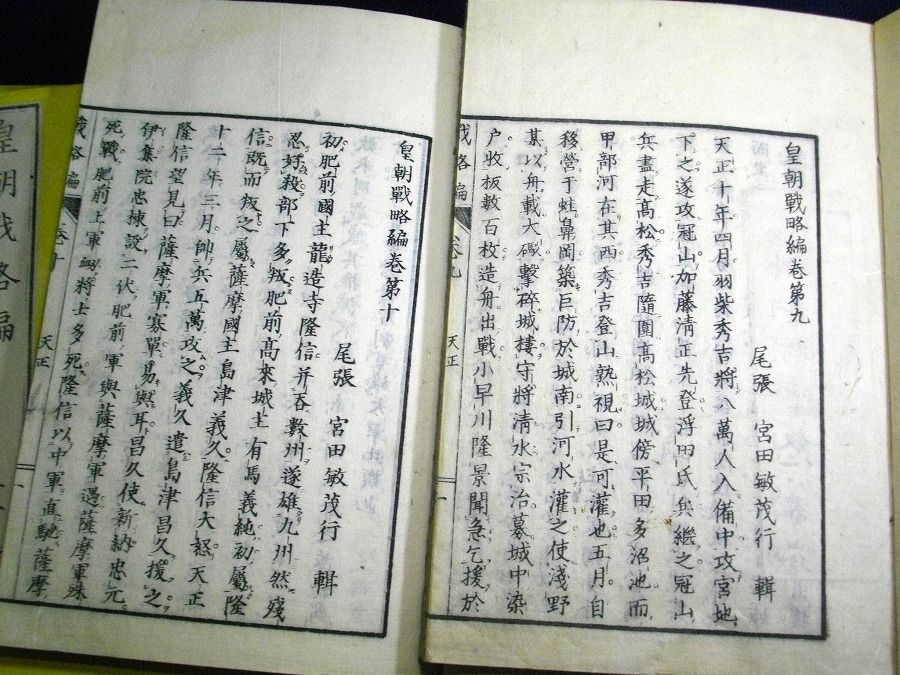 皇朝戰略編卷第九
尾張 宮田敏茂行 輯
天正十年四月羽柴秀吉將八萬人入備中攻宮地
下之遂攻冠山加藤清正先登浮田氏兵繼之冠山
兵盡走髙松秀吉隨圍髙松城城傍平田多沼池而
甲部河在其西秀吉登山熟視曰是可灌也五月自
移營于蛙鼻岡築巨防於城南引河水灌之使淺野
某以舟載大礮擊碎城樓守將清水宗治募城中染
户收板數百枚造舟出戰小早川隆景聞急乞援於
戰略編 卷九 天正 一
皇朝戰略編卷第十
尾張 宮田敏茂行 輯
初肥前國主龍造寺隆信并吞數州遂雄九州然殘
忍好殺部下多叛肥前髙來城主有馬義純初屬隆
信既而叛之屬薩摩國主島津義久隆信大怒天正
十二年三月帥兵五萬攻之義久遣島津昌久援之
隆信望見曰薩摩軍寡單易與耳昌久使新納忠元
伊集院忠棟設二伏肥前軍與薩摩軍遇薩摩軍殊
死戰肥前上軍敗將士多死隆信以中軍直馳薩摩
戰略編 卷十 天正 一
皇朝戰略編